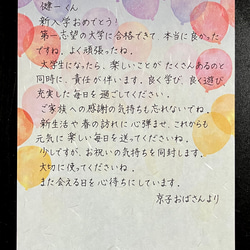 健一くん
新入学おめでとう！
第一志望の大学に合格できて、本当に良かった
ですね。よく頑張ったね。
大学生になったら、楽しいことがたくさんあるのと
同時に、責任が伴います。良く学び、良く遊び
充実した毎日を過ごしてください。
ご家族への感謝の気持ちも忘れないでね。
新生活や春の訪れに心弾ませ、これからも
元気に楽しい毎日を送ってくださいね。
少しですが、お祝いの気持を同封します。
大切に使ってくださいね。
また会える日を心待ちにしています。
京子おばさんより